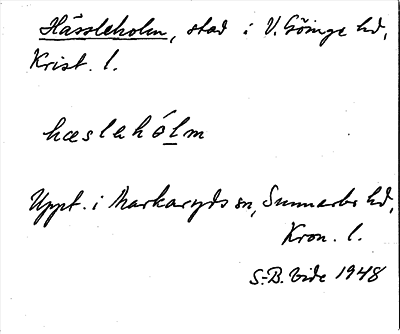 Hässleholm, stad i V. Göinge hd,
Krist. l.
hæslehólm
Uppt. i Markaryds sn, Sunnerbo hd,
Kron. l.
S.-B. Vide 1948